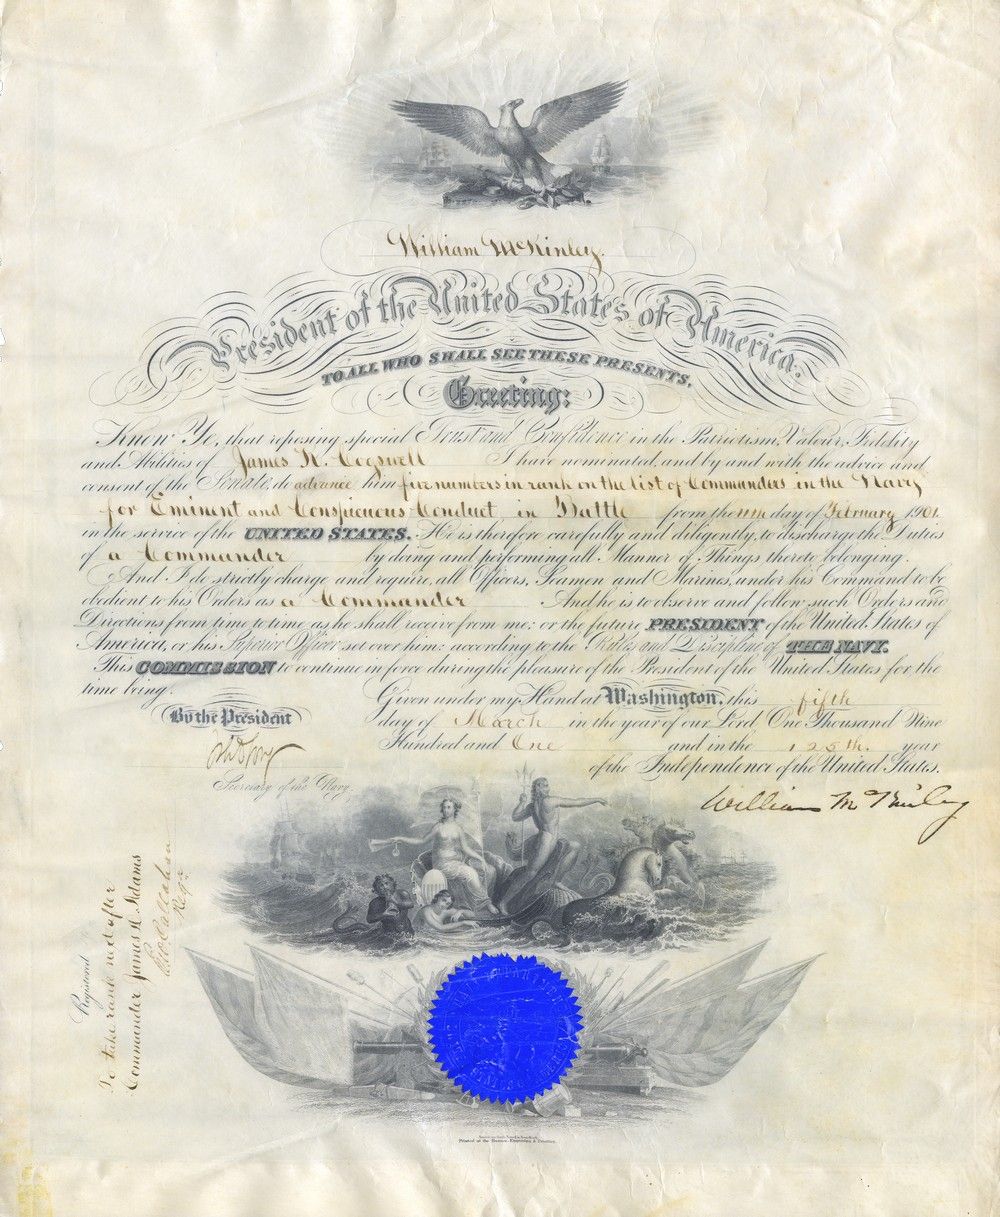 William McKinley
President of the United States of America.
TO ALL WHO SHALL SEE THESE PRESENTS,
Greeting:
Know Ye, that reposing special Trust and Confidence in the Patriotism, Valour, Fidelity
and Abilities of James K. Cogswell I have nominated, and by and with the advice and
consent of the Senate, do advance him five numbers in rank on the list of Commanders in the Navy
for Eminent and Conspicuous Conduct in Battle from the 11th day of February 1901
in the service of the UNITED STATES. He is therefore carefully and diligently, to discharge the Duties
of a Commander by doing and performing all Manner of Things thereto belonging.
And I do strictly charge and require, all Officers, Seamen and Marines, under his Command to be
obedient to his Orders as a Commander And he is to observe and follow such Orders and
Directions from time to time, as he shall receive from me: or the future PRESIDENT of the United States of
America, or his Superior Officer set over him: according to the Rules and Discipline of THE NAVY.
This COMMISSION to continue in force during the pleasure of the President of the United States for the
time being.
Given under my Hand at Washington, this fifth
day of March in the year of our Lord One Thousand Nine
Hundred and One and in the 125th. year
of the Independence of the United States.
By the President
Secretary of the Navy.
William McKinley
Registered
To take rank next after
Commander James D. Adams
Printed at the Bureau, Engraving & Printing.